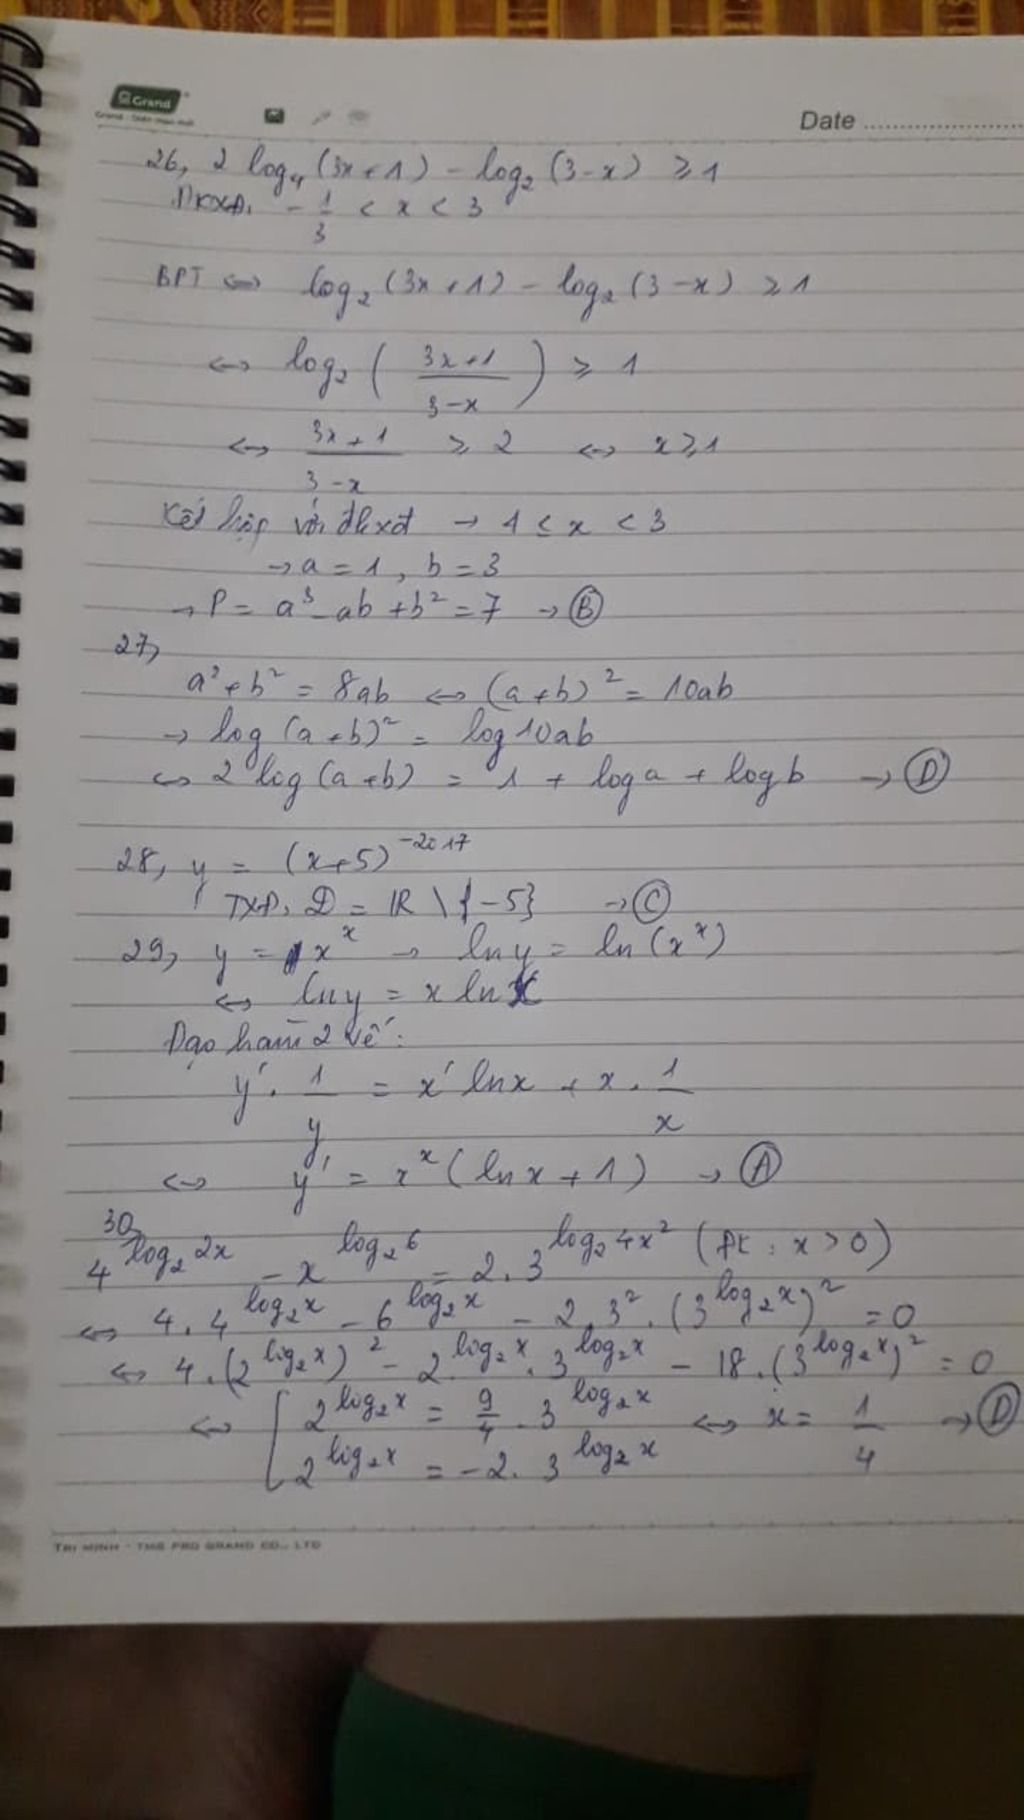 Grand
Date
26, 2 log₄ (3x+1) - log₂ (3-x) ≥ 1
ĐKXĐ: -1/3 < x < 3
BPT ⇔ log₂ (3x+1) - log₂ (3-x) ≥ 1
⇔ log₂ ( (3x+1)/(3-x) ) ≥ 1
⇔ (3x+1)/(3-x) ≥ 2 ⇔ x ≥ 1
Kết hợp với đkxđ → 1 ≤ x < 3
→ a = 1, b = 3
→ P = a³ - ab + b² = 7 → (B)
27,
a² + b² = 8ab ⇔ (a+b)² = 10ab
→ log (a+b)² = log 10ab
⇔ 2 log (a+b) = 1 + log a + log b → (D)
28, y = (x+5)⁻²⁰¹⁷
TXĐ: D = ℝ \ {-5} → (C)
29, y = x^x → ln y = ln (x^x)
⇔ ln y = x ln x
Đạo hàm 2 vế:
y' . 1/y = x' ln x + x . 1/x
⇔ y' = x^x (ln x + 1) → (A)
30,
4^(log₂ 2x) - x^(log₂ 6) = 2 . 3^(log₂ 4x²) (ĐK: x > 0)
⇔ 4 . 4^(log₂ x) - 6^(log₂ x) - 2 . 3² . (3^(log₂ x))² = 0
⇔ 4 . (2^(log₂ x))² - 2^(log₂ x) . 3^(log₂ x) - 18 . (3^(log₂ x))² = 0
⇔ [ 2^(log₂ x) = 9/4 . 3^(log₂ x) ⇔ x = 1/4 → (D)
2^(log₂ x) = -2 . 3^(log₂ x)
TRI MINH - THE PRO GRAND CO., LTD